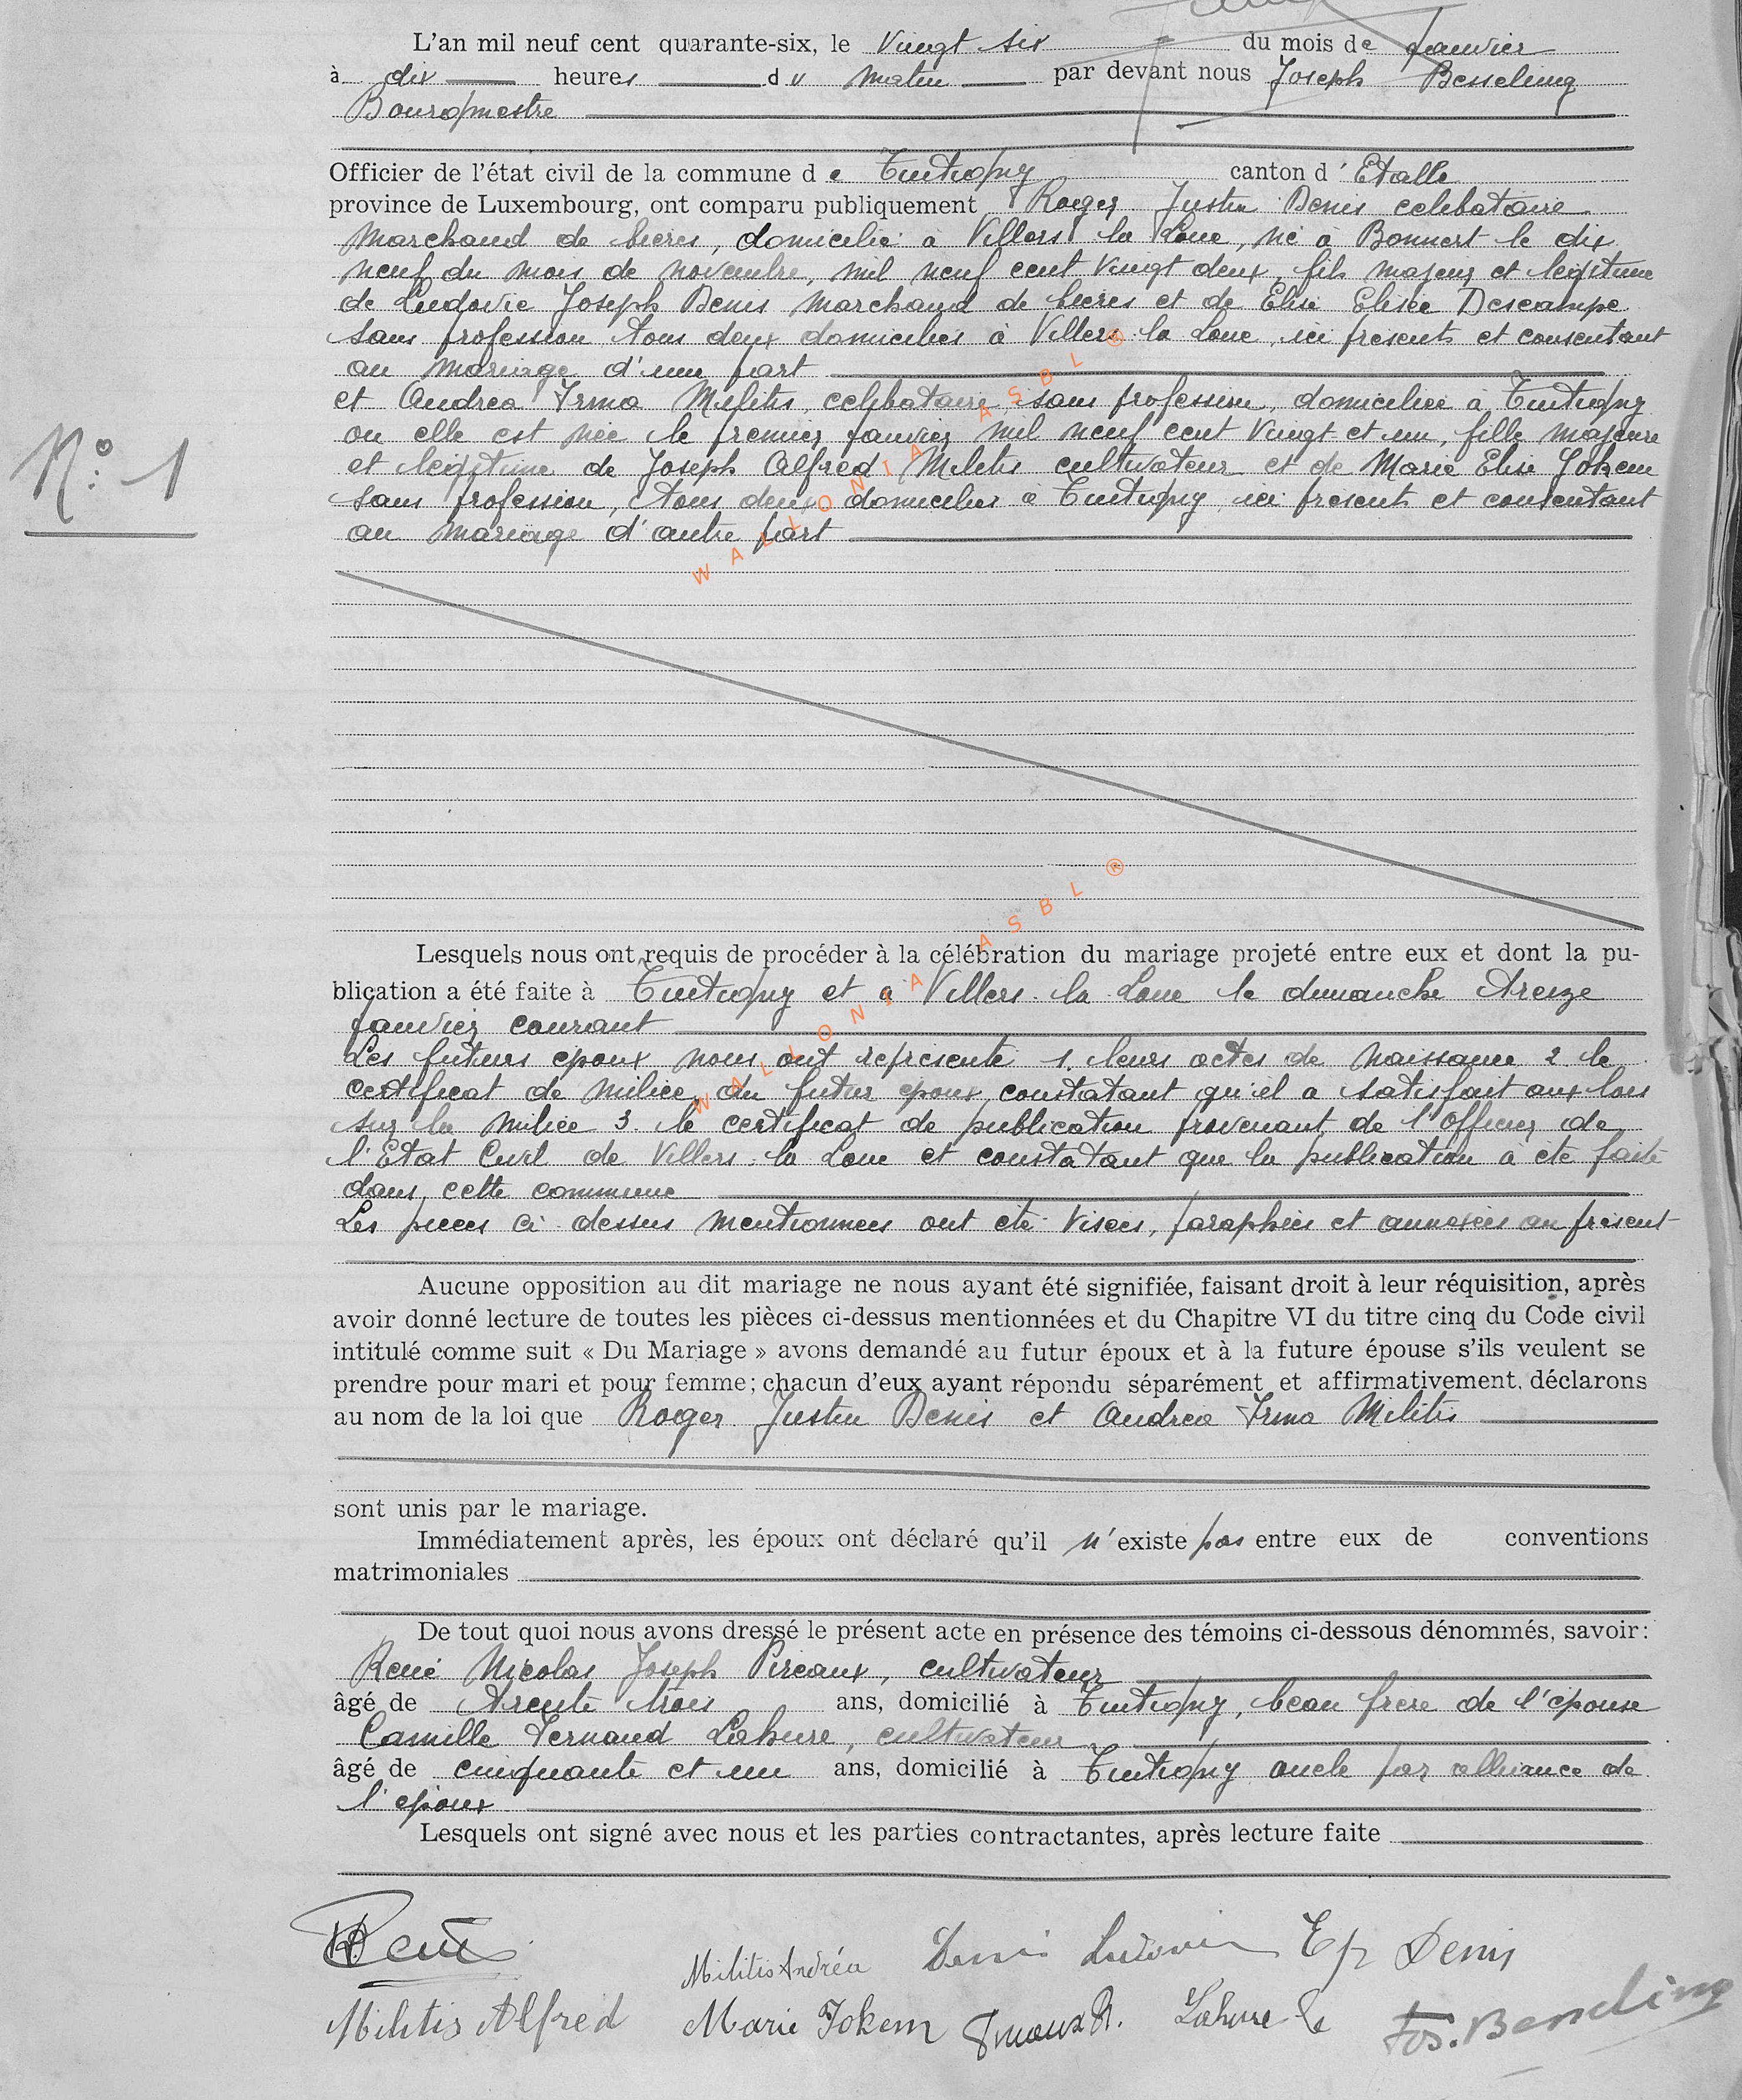 L'an mil neuf cent quarante-six, le Vingt six du mois de Janvier
à dix heures du matin par devant nous Joseph Besseling
Bourgmestre
Officier de l'état civil de la commune de Tintigny canton d'Etalle
province de Luxembourg, ont comparu publiquement Roger Justin Denis celibataire
Marchand de bieres, domicilié à Villers la Loue, né à Bonnert le dix
neuf du mois de novembre, mil neuf cent vingt deux, fils majeur et legitime
de Ludovic Joseph Denis marchand de bieres et de Elise Elisée Descampe
sans profession tous deux domiciliés à Villers la Loue, ici présents et consentant
au mariage d'une part
et Andrea Irma Militis, celibataire, sans profession, domiciliée à Tintigny
ou elle est née le premier janvier mil neuf cent vingt et un, fille majeure
et legitime de Joseph Alfred Militis cultivateur et de Marie Elise Jokem
sans profession, tous deux domiciliés à Tintigny, ici présents et consentant
au mariage d'autre part
N° 1
Lesquels nous ont requis de procéder à la célébration du mariage projeté entre eux et dont la pu-
blication a été faite à Tintigny et à Villers-la-Loue le dimanche treize
janvier courant
Les futurs époux nous ont représenté 1. leurs actes de naissance 2. le
certificat de milice du futur époux constatant qu'il a satisfait aux lois
sur la milice 3. le certificat de publication provenant de l'Officier de
l'Etat Civil de Villers-la-Loue et constatant que la publication a été faite
dans cette commune
Les pièces ci-dessus mentionnées ont été visées, paraphées et annexées au présent
Aucune opposition au dit mariage ne nous ayant été signifiée, faisant droit à leur réquisition, après
avoir donné lecture de toutes les pièces ci-dessus mentionnées et du Chapitre VI du titre cinq du Code civil
intitulé comme suit « Du Mariage » avons demandé au futur époux et à la future épouse s'ils veulent se
prendre pour mari et pour femme; chacun d'eux ayant répondu séparément et affirmativement, déclarons
au nom de la loi que Roger Justin Denis et Andrea Irma Militis
sont unis par le mariage.
Immédiatement après, les époux ont déclaré qu'il n'existe pas entre eux de conventions
matrimoniales
De tout quoi nous avons dressé le présent acte en présence des témoins ci-dessous dénommés, savoir:
René Nicolas Joseph Pireaux, cultivateur
âgé de trente trois ans, domicilié à Tintigny, beau frere de l'épouse
Camille Fernand Lahure, cultivateur
âgé de cinquante et un ans, domicilié à Tintigny oncle par alliance de
l'époux
Lesquels ont signé avec nous et les parties contractantes, après lecture faite
Militis Andréa Denis Ludovic Ep Denis
Militis Alfred Marie Jokem Lahure Jos. Besseling
WALLONIA ASBL ®
WALLONIA ASBL ®